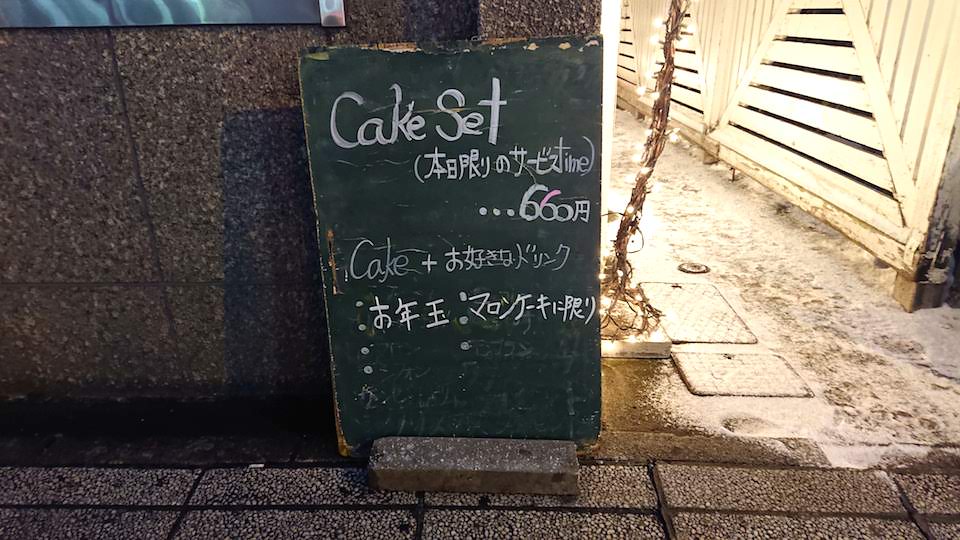 Cake Set
(本日限りのサービスtime)
...660円
Cake + お好きなドリンク
・お年玉 ・マロンケーキに限り